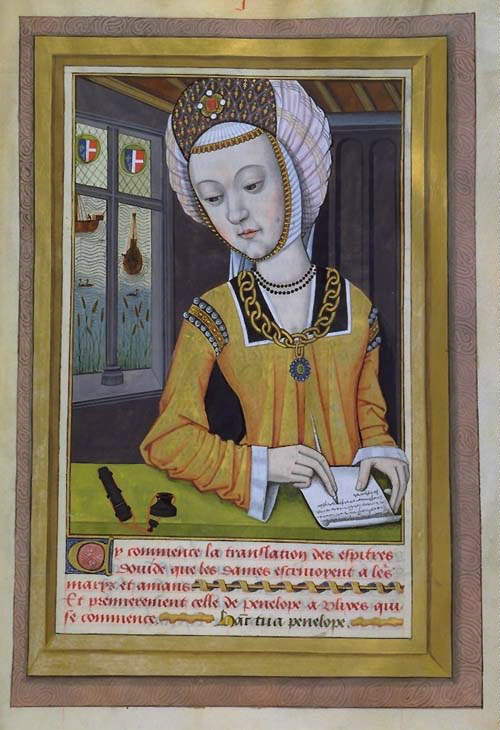 Cy commence la translation des espitres
Dovide que les dames escriuoyent a leˢ
marys et amans
Et premierement celle de penelope a vlixes qui
se commence. Hāc tua penelope.